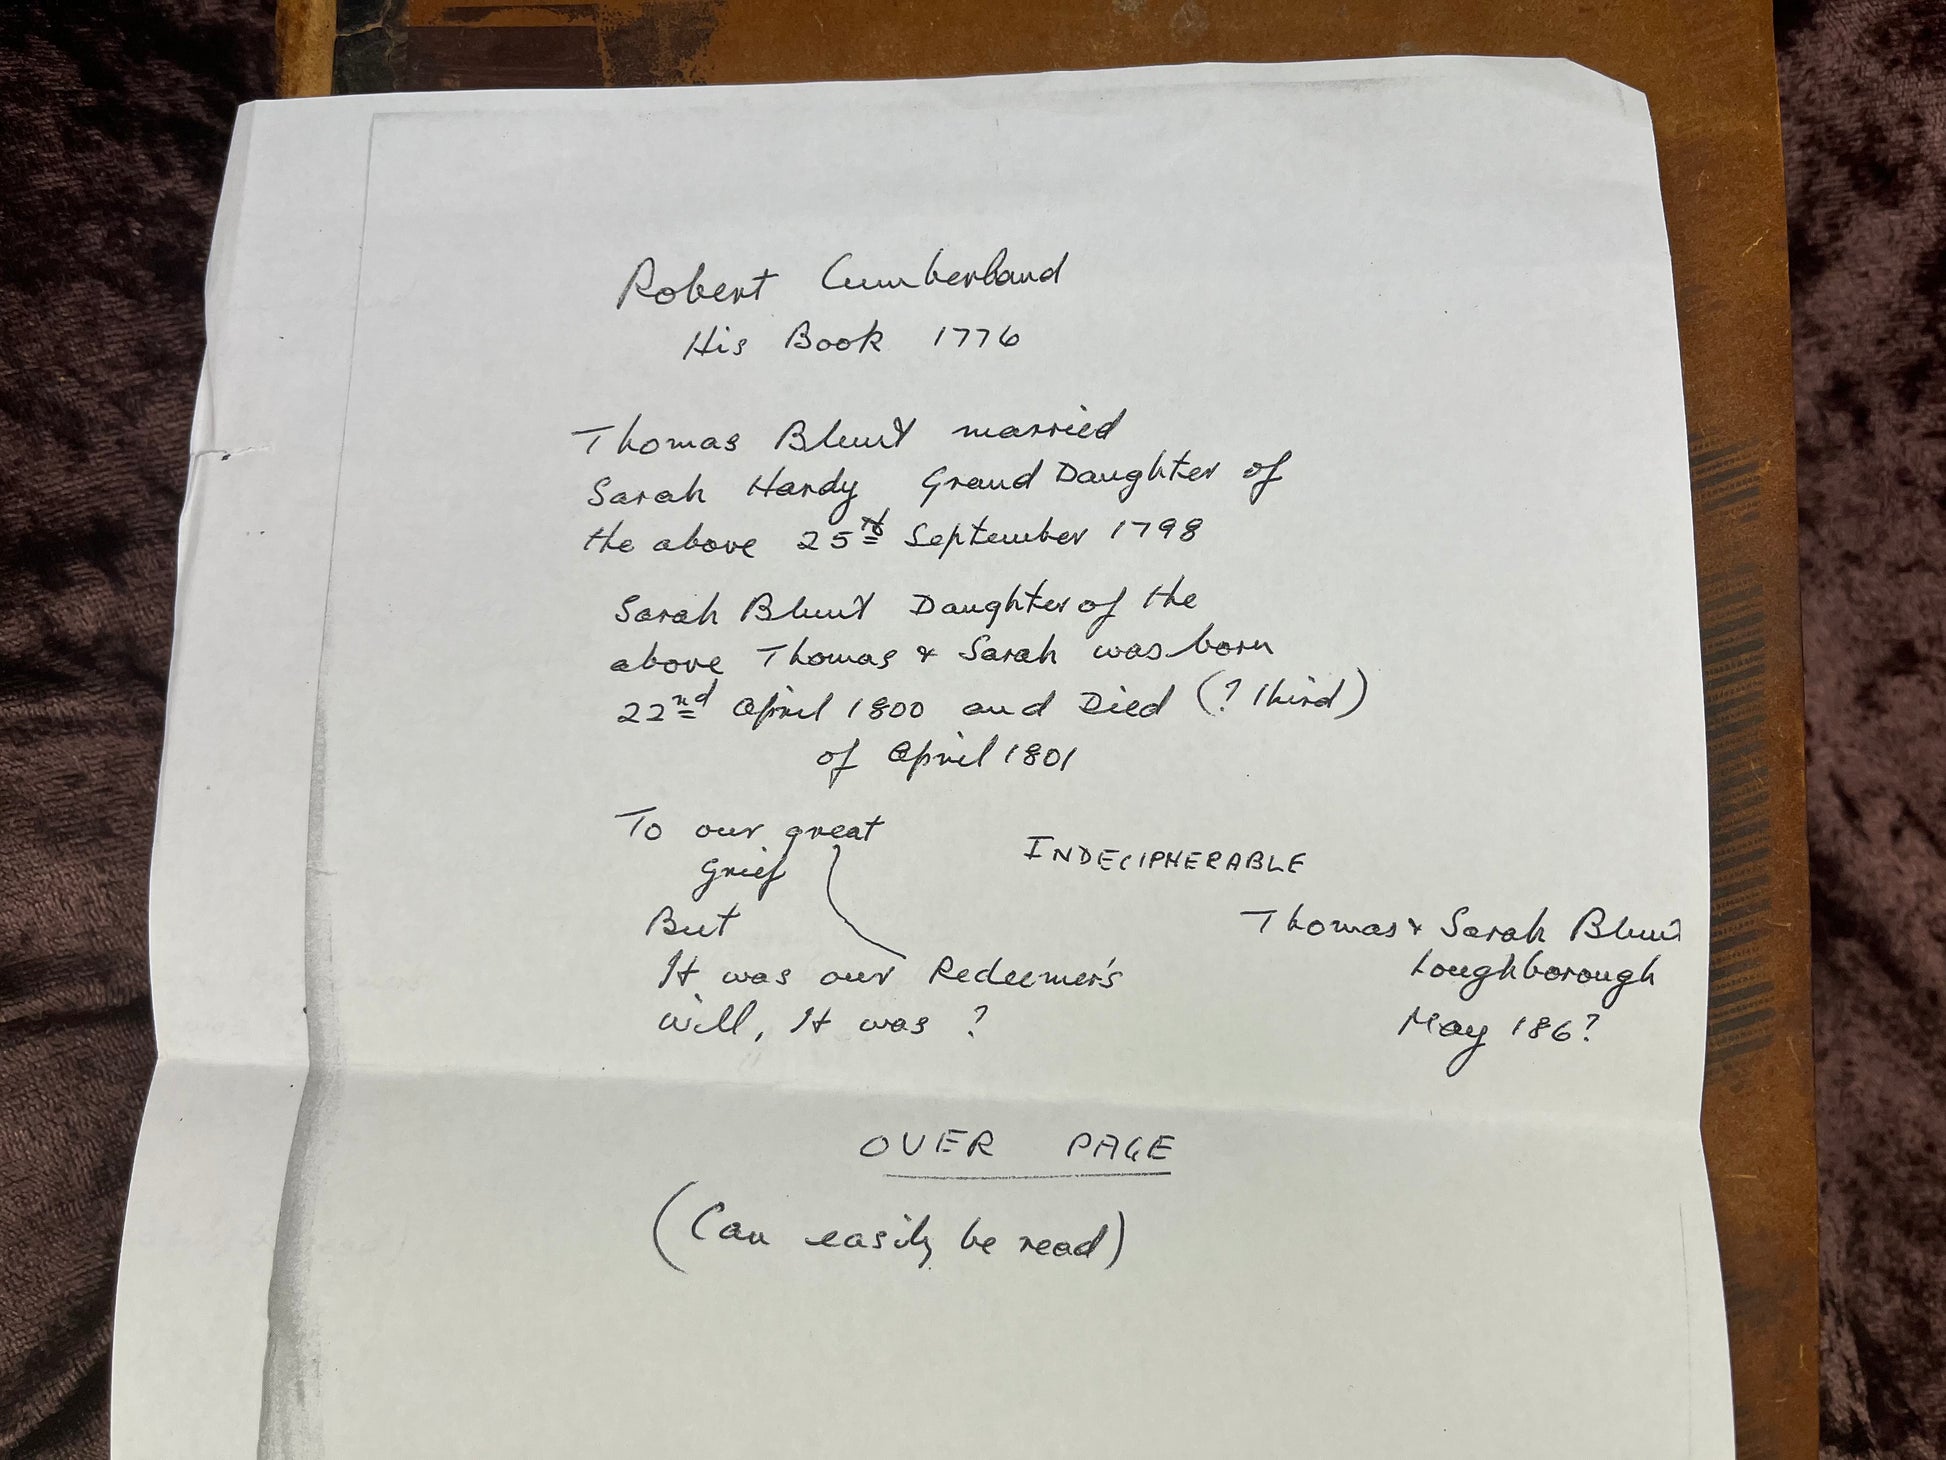 Robert Cumberland
His Book 1776
Thomas Blunt married
Sarah Hardy Grand Daughter of
the above 25th September 1798
Sarah Blunt Daughter of the
above Thomas & Sarah was born
22nd April 1800 and Died (? third)
of April 1801
To our great
grief
INDECIPHERABLE
But
Thomas & Sarah Blunt
It was our Redeemer's
Loughborough
will, It was ?
May 186?
OVER PAGE
(Can easily be read)